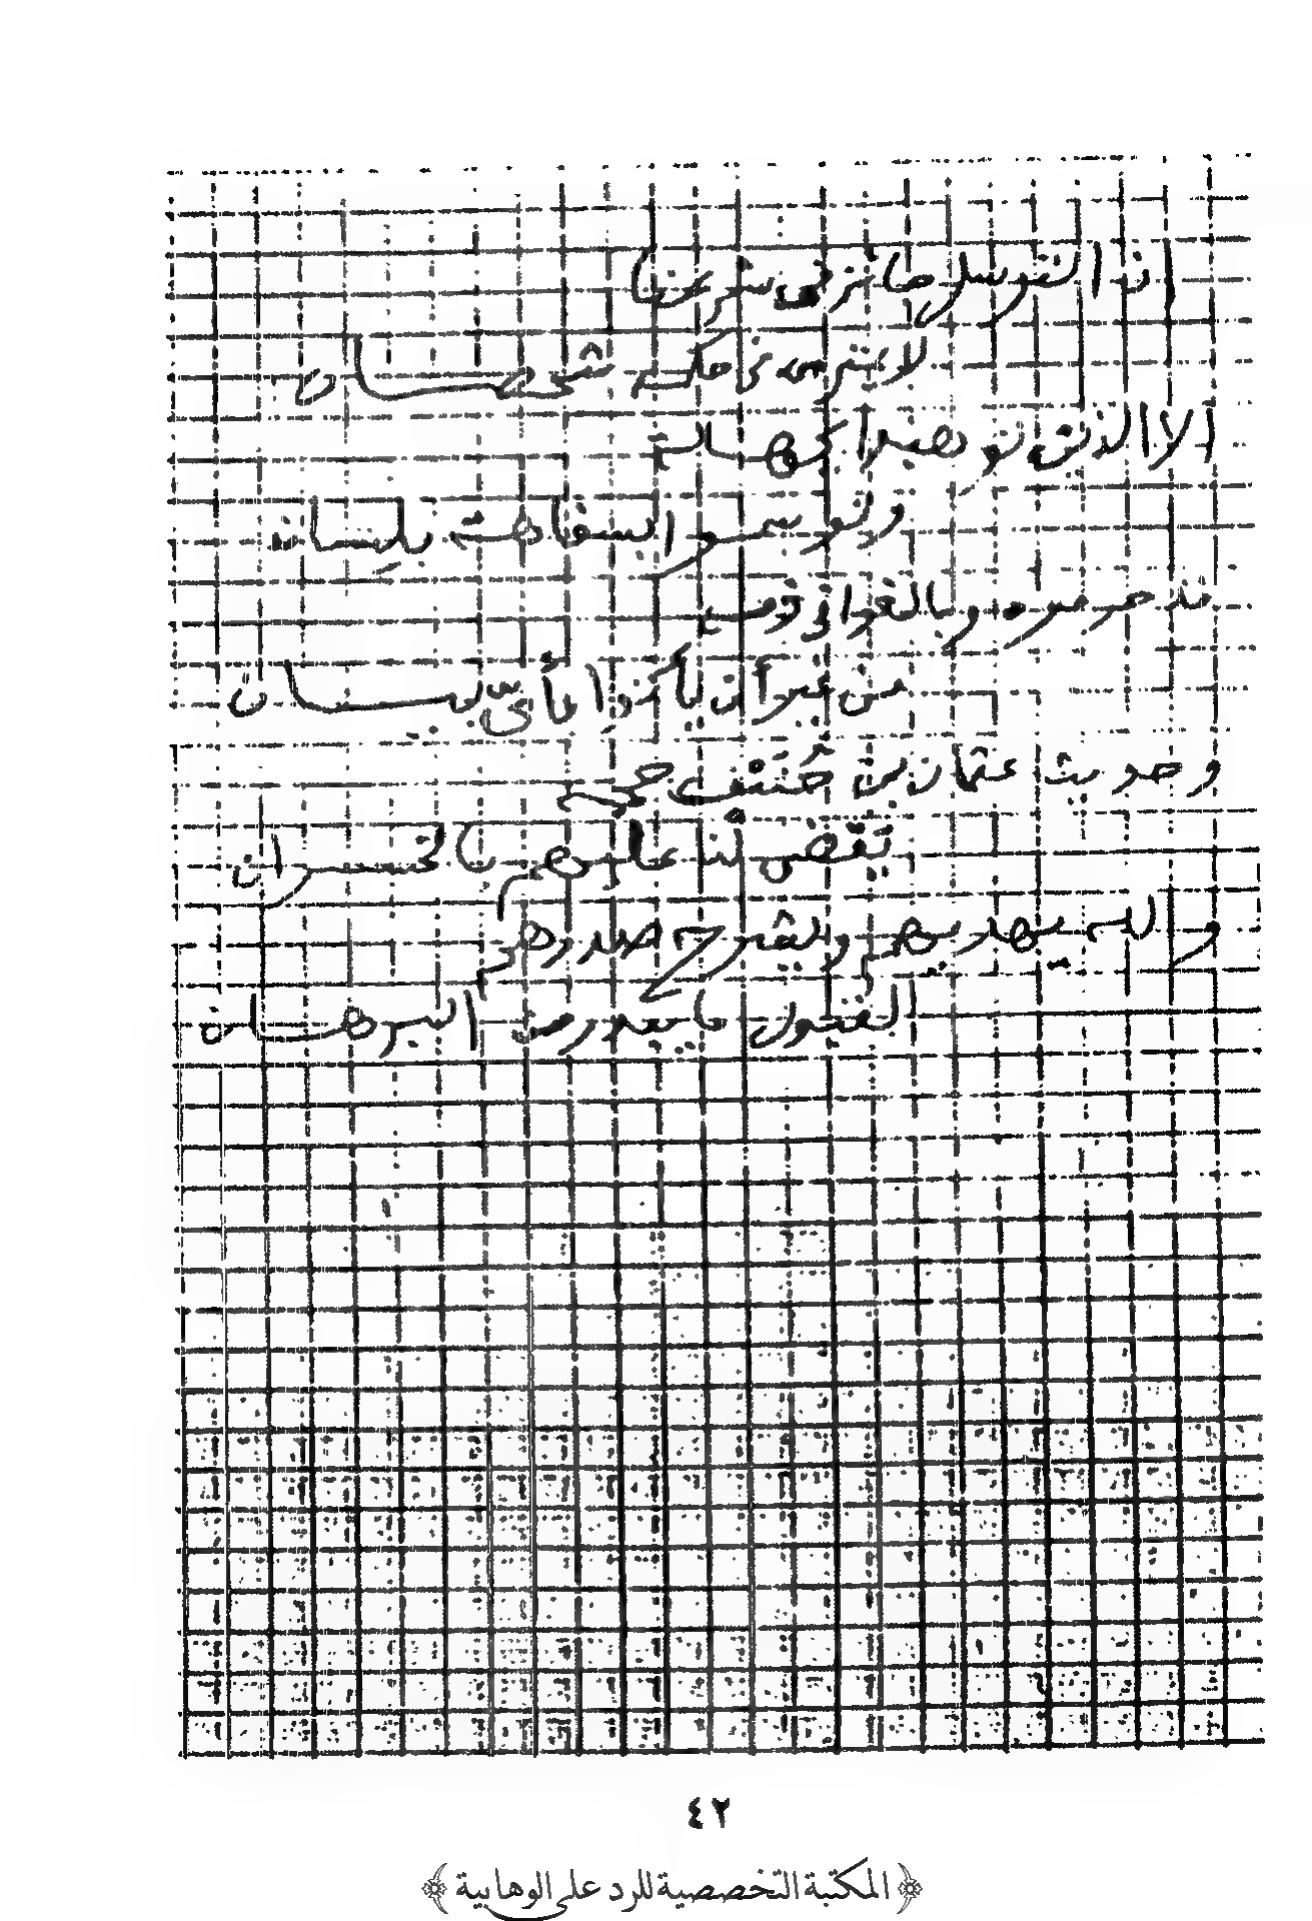 إن التوسل جائز في شرعنا
لا يمتري في حكمه شخصان
إلا الذين توهبوا بجهالة
وتوسموا السفاهة بلسان
قد حرموه وبالغوا في
من غير أن يأتوا بأيّ بيان
وحديث عثمان بن حُنَيْف حجة
تَقْضي لنا عليهم بالخسران
والله يهديهم ويشرح صدرهم
لقبول ما يبدو من البرهان
٤٢
المكتبة التخصصية للرد على الوهابية